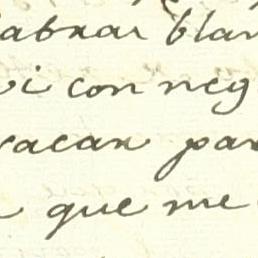 labrar blan
vi con neg
sacar par
que me